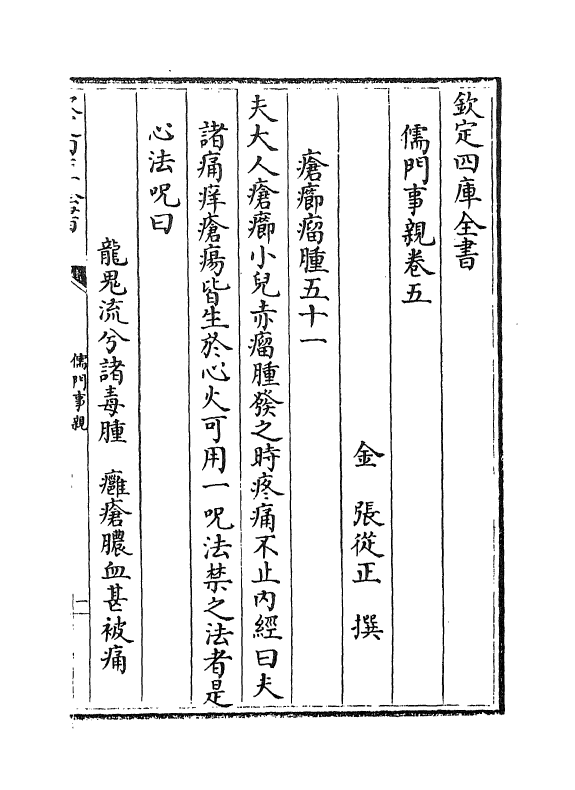 欽定四庫全書
儒門事親卷五
金 張從正 撰
瘡癤瘤腫五十一
夫大人瘡癤小兒赤瘤腫發之時疼痛不止內經曰夫
諸痛痒瘡瘍皆生於心火可用一呪法禁之法者是
心法呪曰
龍鬼流兮諸毒腫 癰瘡膿血甚被痛
儒門事親
一